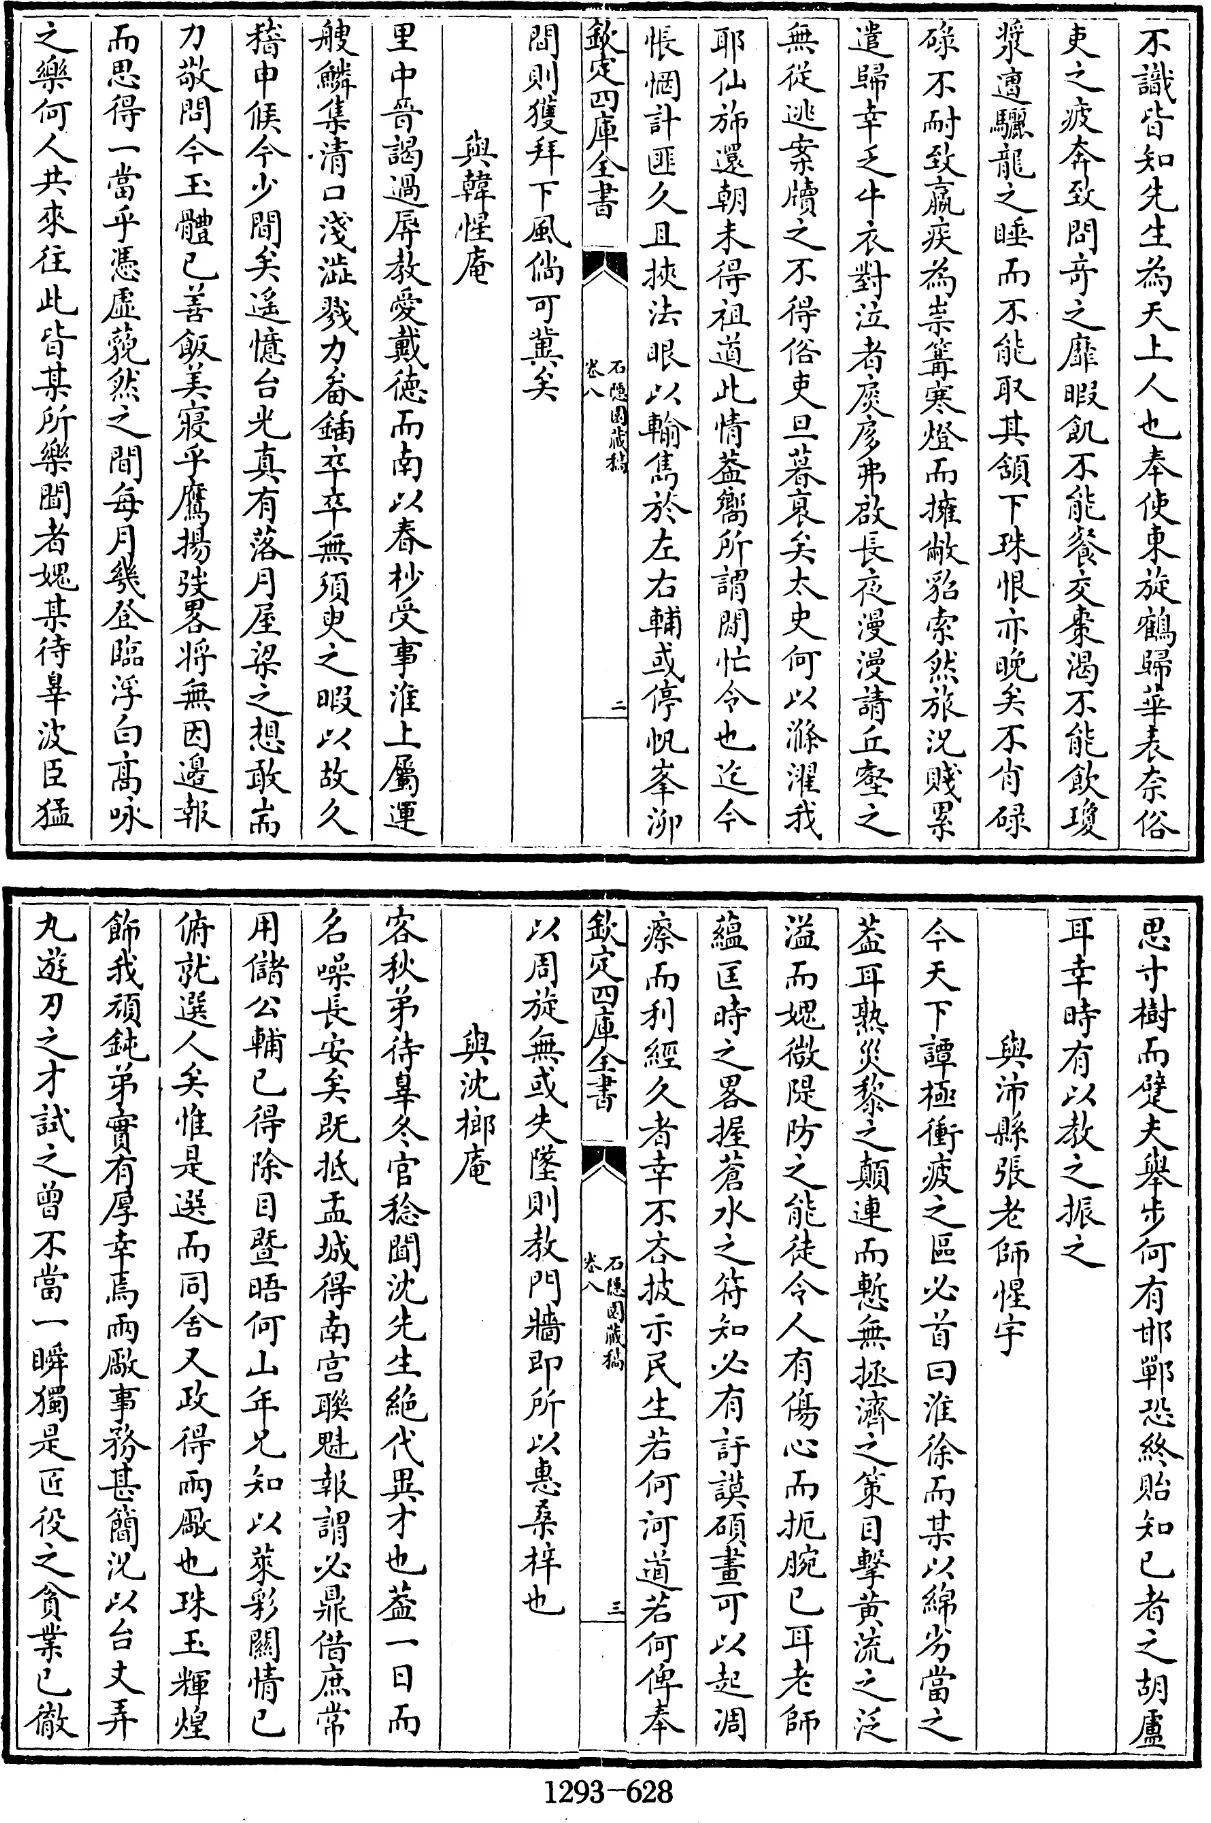 不識皆知先生為天上人也奉使東旋鶴歸華表奈俗
吏之疲奔致問竒之靡暇飢不能餐交棗渴不能飲瓊
漿遭驪龍之睡而不能取其頷下珠恨亦晚矣不肖碌
碌不耐致羸疾為祟篝寒燈而擁敝貂索然旅况賤累
遣歸幸乏牛衣對泣者扊扅弗啟長夜漫漫請丘壑之
無從逃案牘之不得俗吏旦暮哀矣太史何以滌濯我
耶仙斾還朝未得祖道此情葢嚮所謂閒忙令也迄今
悵惘計匪久且挾法眼以輸雋於左右輔或停帆峯泖
欽定四庫全書
石隱園藏稿
卷八
二
間則獲拜下風倘可冀矣
與韓惺庵
里中晉謁過辱教愛戴德而南以春杪受事淮上屬運
艘鱗集清口淺澁戮力畚鍤卒卒無須臾之暇以故久
稽申候今少間矣遥憶台光真有落月屋梁之想敢耑
力敬問今玉體已善飯美寢乎鷹揚弢畧將無因邊報
而思得一當乎憑虛藐然之間每月幾登臨浮白高咏
之樂何人共來往此皆某所樂聞者媿某待辠波臣猛
思寸樹而躄夫舉步何有邯鄲恐終貽知己者之胡盧
耳幸時有以教之振之
與沛縣張老師惺宇
今天下譚極衝疲之區必首曰淮徐而某以綿劣當之
葢耳熟災黎之顛連而慙無拯濟之策目擊黄流之泛
溢而媿微隄防之能徒令人有傷心而扼腕已耳老師
藴匡時之畧握蒼水之符知必有訏謨碩畫可以起凋
瘵而利經久者幸不吝披示民生若何河道若何俾奉
欽定四庫全書
石隱園藏稿
卷八
三
以周旋無或失墜則教門牆即所以惠桑梓也
與沈梛庵
客秋弟待辠冬官稔聞沈先生絶代異才也葢一日而
名噪長安矣既抵盂城得南宫聯魁報謂必鼎借庶常
用儲公輔已得除目暨晤何山年兄知以萊彩關情已
俯就選人矣惟是選而同舍又政得兩厰也珠玉輝煌
飾我頑鈍弟實有厚幸焉兩厰事務甚簡况以台丈弄
丸遊刃之才試之曾不當一瞬獨是匠役之貪業已徹
1293-628